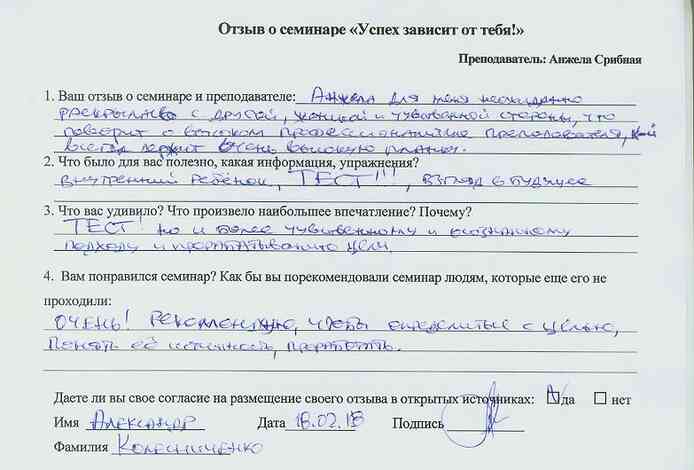 Отзыв о семинаре «Успех зависит от тебя!»
Преподаватель: Анжела Срибная
1. Ваш отзыв о семинаре и преподавателе: Анжела для меня неожиданно
раскрылась с другой, женской и чувственной стороны, что
говорит о высоком профессионализме преподавателя,
всегда держит очень высокую планку.
2. Что было для вас полезно, какая информация, упражнения?
Внутренний ребёнок, ТЕСТ!!!, взгляд в будущее
3. Что вас удивило? Что произвело наибольшее впечатление? Почему?
ТЕСТ! но и более чувственному и осознанному
подходу и прорабатыванию цели.
4. Вам понравился семинар? Как бы вы порекомендовали семинар людям, которые еще его не
проходили:
ОЧЕНЬ! Рекомендую, чтобы определиться с целью,
понять её истинность, проработать.
Даете ли вы свое согласие на размещение своего отзыва в открытых источниках: да нет
Имя Александр Дата 18.02.18 Подпись
Фамилия Колесниченко